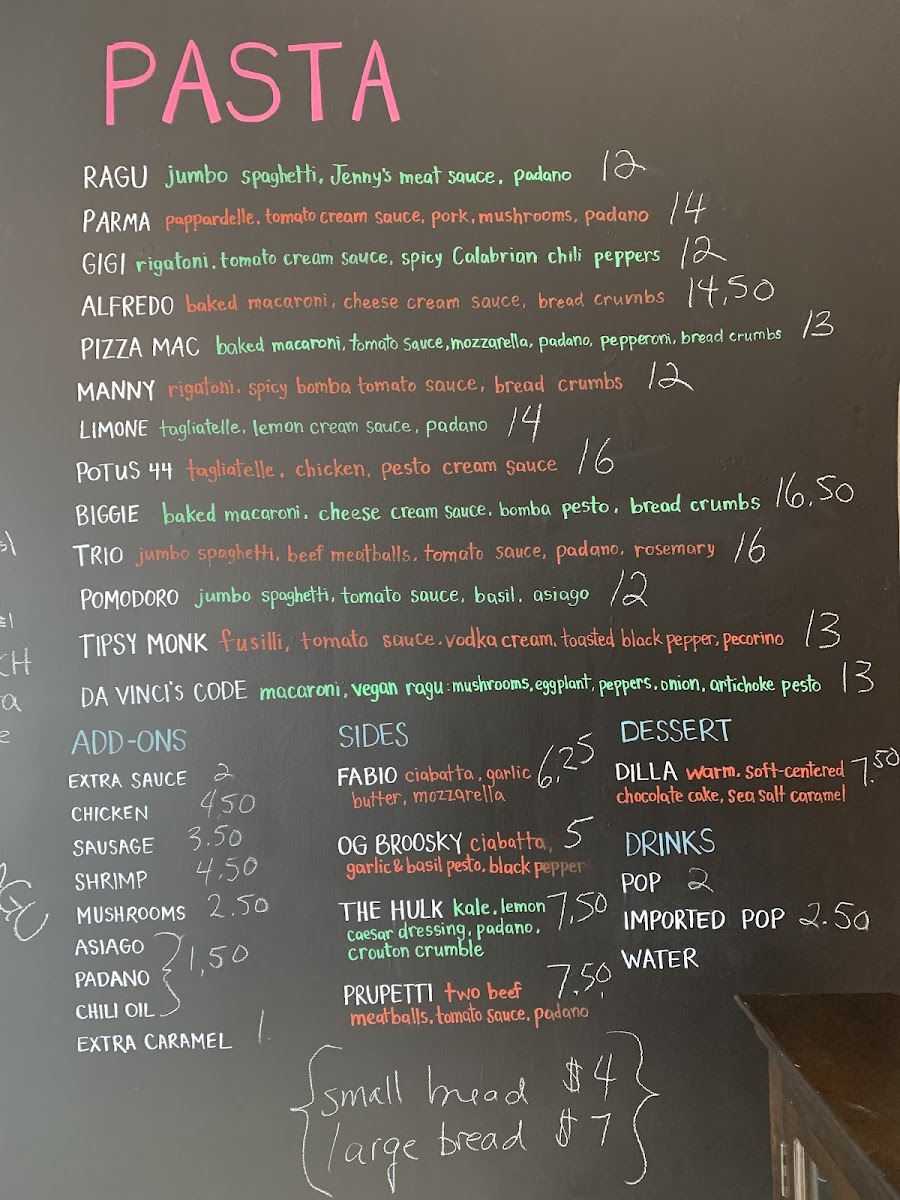 PASTA
RAGU jumbo spaghetti, Jenny's meat sauce, padano 12
PARMA pappardelle, tomato cream sauce, pork, mushrooms, padano 14
GIGI rigatoni, tomato cream sauce, spicy Calabrian chili peppers 12
ALFREDO baked macaroni, cheese cream sauce, bread crumbs 14,50
PIZZA MAC baked macaroni, tomato sauce, mozzarella, padano, pepperoni, bread crumbs 13
MANNY rigatoni, spicy bomba tomato sauce, bread crumbs 12
LIMONE tagliatelle, lemon cream sauce, padano 14
POTUS 44 tagliatelle, chicken, pesto cream sauce 16
BIGGIE baked macaroni, cheese cream sauce, bomba pesto, bread crumbs 16,50
TRIO jumbo spaghetti, beef meatballs, tomato sauce, padano, rosemary 16
POMODORO jumbo spaghetti, tomato sauce, basil, asiago 12
TIPSY MONK fusilli, tomato sauce, vodka cream, toasted black pepper, pecorino 13
DA VINCI'S CODE macaroni, vegan ragu: mushrooms, eggplant, peppers, onion, artichoke pesto 13
ADD-ONS
EXTRA SAUCE 2
CHICKEN 4,50
SAUSAGE 3.50
SHRIMP 4.50
MUSHROOMS 2.50
ASIAGO
PADANO 1,50
CHILI OIL
EXTRA CARAMEL 1.
SIDES
FABIO ciabatta, garlic 6,25
butter, mozzarella
OG BROOSKY ciabatta, 5
garlic & basil pesto, black pepper
THE HULK kale, lemon 7,50
caesar dressing, padano,
crouton crumble
PRUPETTI two beef 7.50
meatballs, tomato sauce, padano
DESSERT
DILLA warm, soft-centered 7.50
chocolate cake, sea salt caramel
DRINKS
POP 2
IMPORTED POP 2.50
WATER
small bread $4
large bread $7